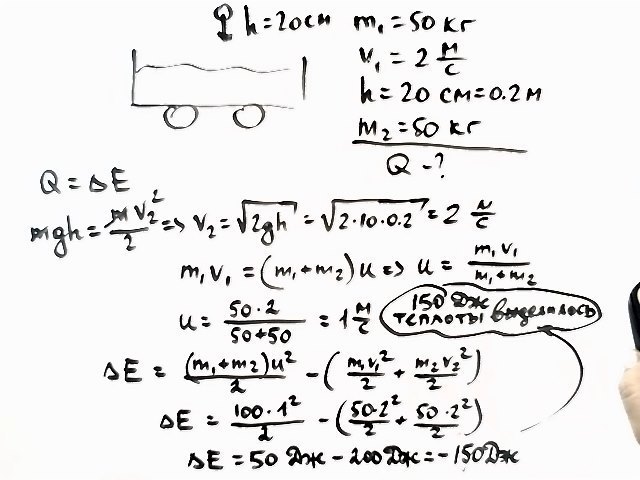 h = 20 см
m₁ = 50 кг
v₁ = 2 м/с
h = 20 см = 0.2 м
m₂ = 50 кг
Q - ?
Q = ΔE
mgh = mv₂²/2 => v₂ = √2gh = √2·10·0.2 = 2 м/с
m₁v₁ = (m₁+m₂)u => u = m₁v₁/m₁+m₂
u = 50·2/50+50 = 1 м/с
150 Дж
теплоты выделилось
ΔE = (m₁+m₂)u²/2 - (m₁v₁²/2 + m₂v₂²/2)
ΔE = 100·1²/2 - (50·2²/2 + 50·2²/2)
ΔE = 50 Дж - 200 Дж = -150 Дж